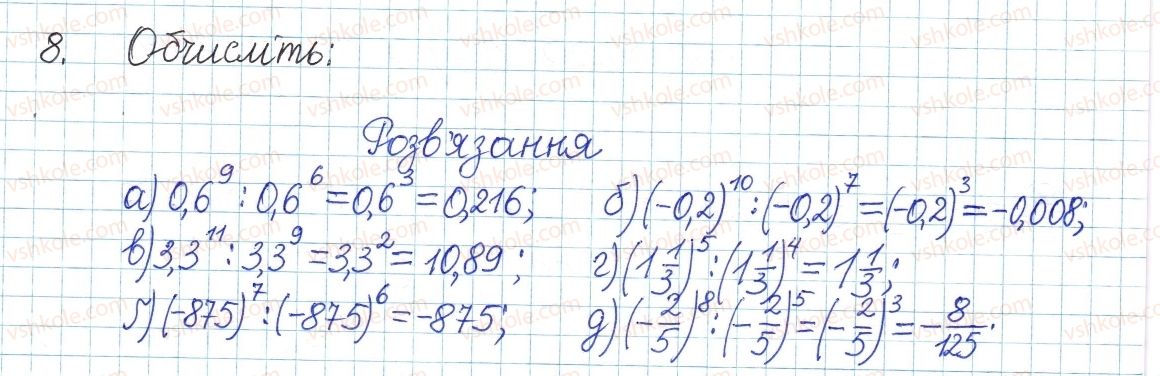 8. Обчисліть:
Розв'язання
а) 0,6⁹ : 0,6⁶ = 0,6³ = 0,216; б) (-0,2)¹⁰ : (-0,2)⁷ = (-0,2)³ = -0,008;
в) 3,3¹¹ : 3,3⁹ = 3,3² = 10,89; г) (1 1/3)⁵ : (1 1/3)⁴ = 1 1/3;
ґ) (-875)⁷ : (-875)⁶ = -875; д) (-2/5)⁸ : (-2/5)⁵ = (-2/5)³ = -8/125.
vshkole.com